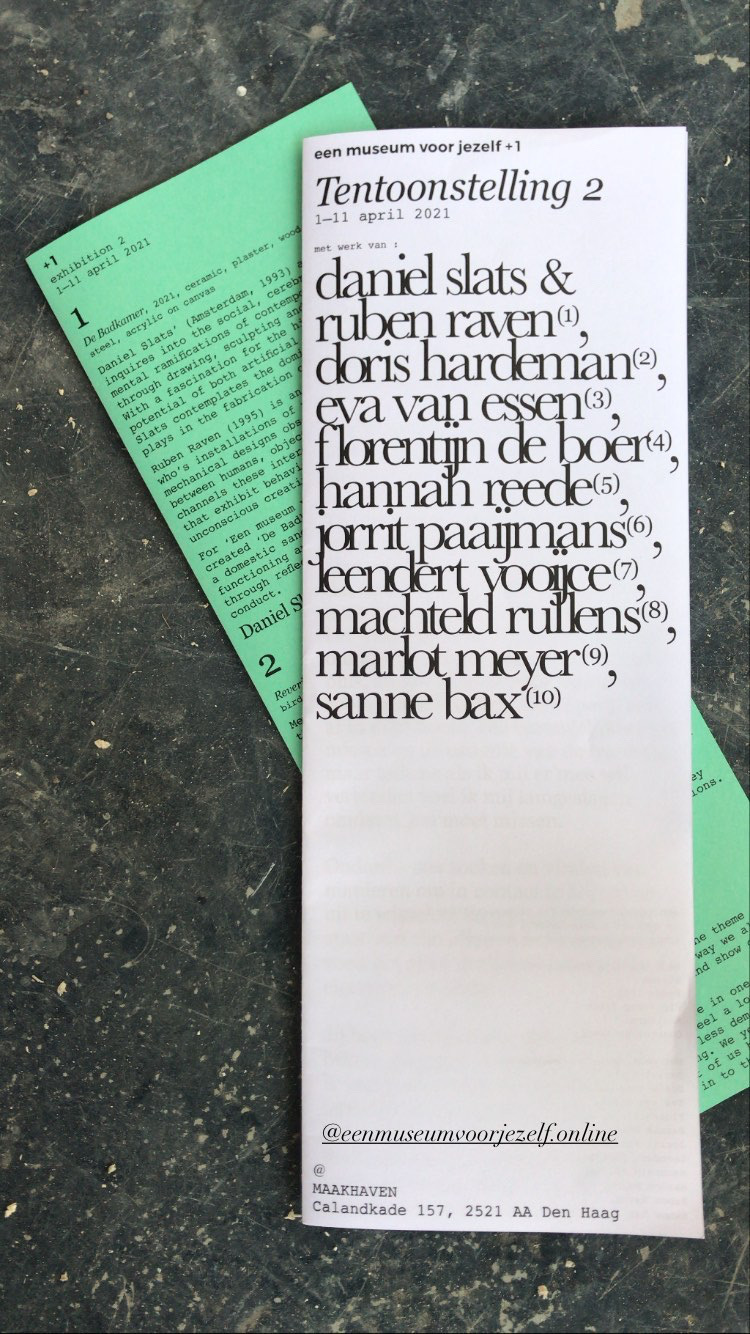 een museum voor jezelf +1
Tentoonstelling 2
1—11 april 2021
met werk van :
daniel slats &
ruben raven(1),
doris hardeman(2),
eva van essen(3),
florentijn de boer(4),
hannah reede(5),
jorrit paaijmans(6),
leendert vooijce(7),
machteld rullens(8),
marlot meyer(9),
sanne bax(10)
@eenmuseumvoorjezelf.online
@
MAAKHAVEN
Calandkade 157, 2521 AA Den Haag
+1
exhibition 2
1—11 april 2021
1
De Badkamer, 2021, ceramic, plaster, wood,
steel, acrylic on canvas
Daniel Slats' (Amsterdam, 1993)
inquires into the social, cereb
mental ramifications of contempo
through drawing, sculpting an
With a fascination for the h
potential of both artificial
Slats contemplates the domi
plays in the fabrication
Ruben Raven (1995) is an
who's installations of
mechanical designs obs
between humans, objec
channels these inter
that exhibit behavi
unconscious creati
For 'Een museum
created 'De Bad
a domestic san
functioning a
through refle
conduct.
Daniel Sl
2
Rever
bird
Me
ey
ions.
he theme
way we a
nd show
e in one
eel a lo
less dem
g. We y
of us
in to th